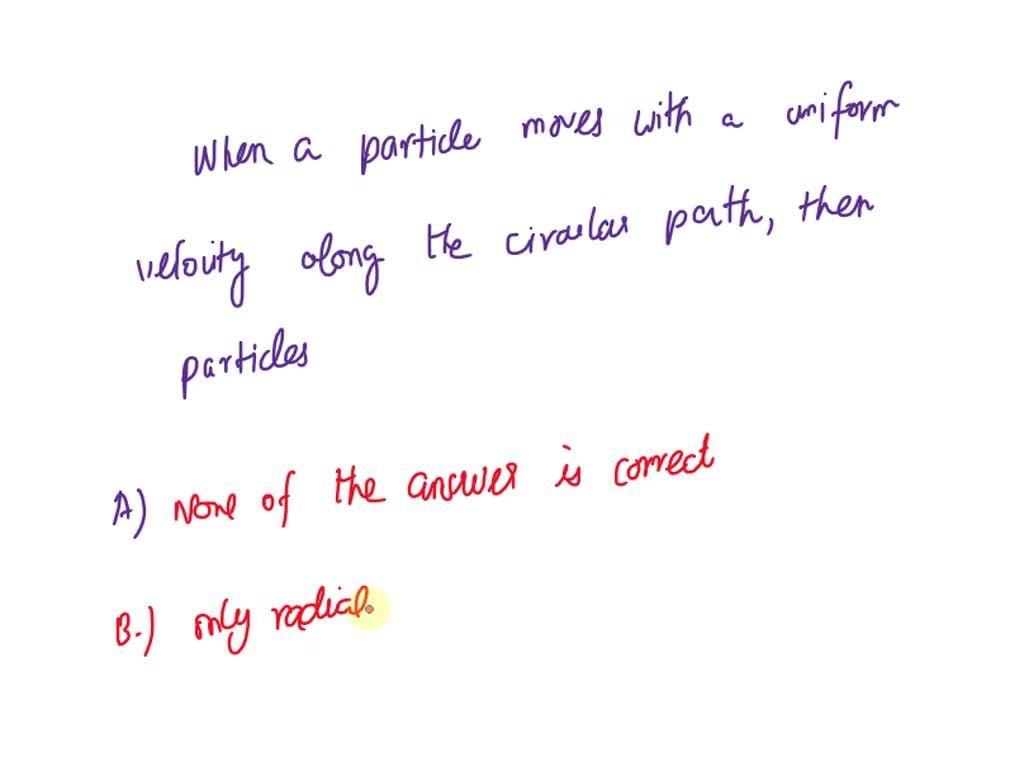 When a particle moves with a uniform
velocity along the circular path, then
particles
A) None of the answer is correct
B.) only radial